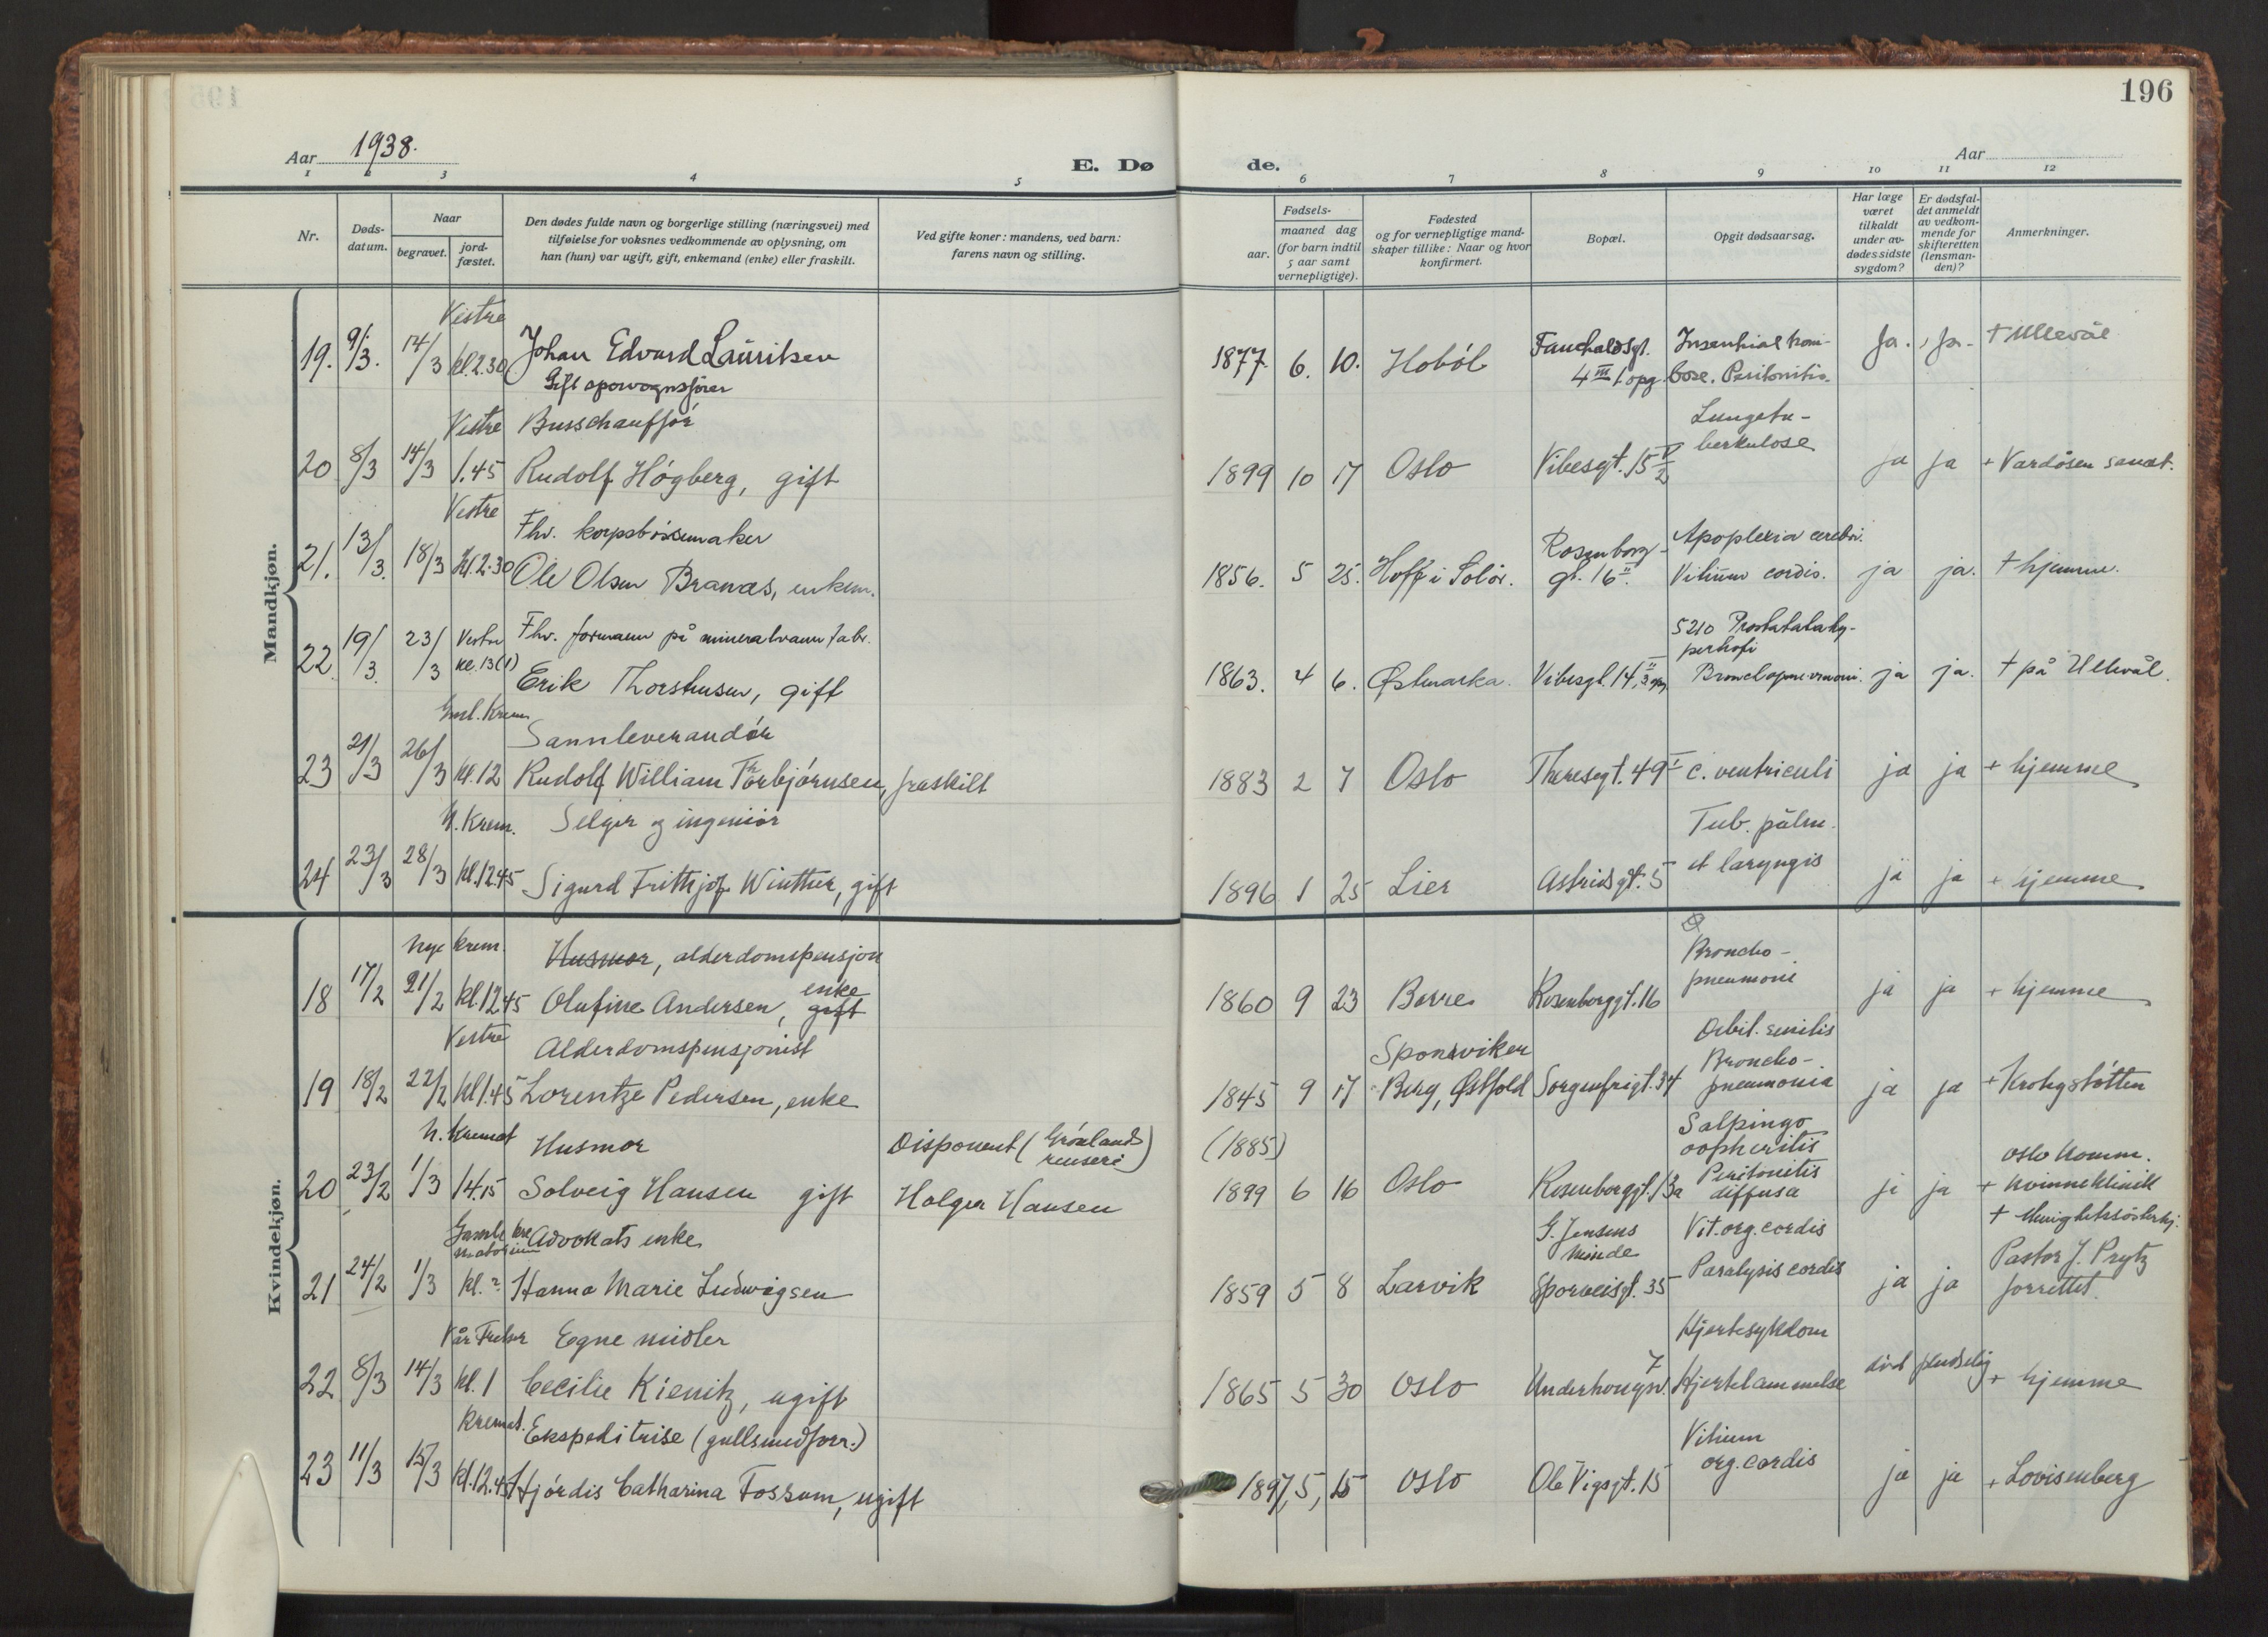 196
Aar 1938.
E. Dø de.
Aar
1 2 3 4 5 6 7 8 9 10 11 12
Nr.
Døds-
datum.
Naar
begravet.
jord-
fæstet.
Den dødes fulde navn og borgerlige stilling (næringsvei) med
tilføielse for voksnes vedkommende av oplysning, om
han (hun) var ugift, gift, enkemand (enke) eller fraskilt.
Ved gifte koner: mandens, ved barn:
farens navn og stilling.
Fødsels-
aar.
maaned dag
(for barn indtil
5 aar samt
vernepligtige).
Fødested
og for vernepligtige mand-
skaper tillike: Naar og hvor
konfirmert.
Bopæl.
Opgit dødsaarsag.
Har læge
været
tilkaldt
under av-
dødes sidste
sygdom?
Er dødsfal-
det anmeldt
av vedkom-
mende for
skifteretten
(lensman-
den)?
Anmerkninger.
Mandkjøn.
Vestre
19. 9/3. 14/3 kl. 2.30 Johan Edvard Lauritsen 1877. 6. 10. Hobøl Fauchaldsgt. Ja. Ja. + Ullevål
Gift sporvognsfører 4 III 1 opg. bose. Peritonitis.
Vestre Busschauffør Lungetu-
berkulose
20 8/3 14/3 1.45 Rudolf Högberg, gift 1899 10 17 Oslo Vibesgt. 15 ja ja + Vardåsen sanat.
Vestre Fhv. korpsbøssemaker Rosenborg- Apoplexia cerebri.
21. 13/3. 18/3 Kl. 2.30 Ole Olsen Branæs, enkem. 1856. 5 25. Hoff i Solør. gt. 16 II. Vitium cordis. ja ja. + hjemme.
Vestre Fhv. formann på mineralvann fabr. 5210 Prostatahy-
perhofi
22. 19/3. 23/3 kl. 13 (1) Erik Thorshusen, gift 1863. 4 6. Østmarka. Vibesgt. 14, II 3 opg. Bronchopneumoni. ja ja. + på Ullevål.
Gml. Krem. Sannleverandør
23 21/3 26/3 kl. 12 Rudolf William Thorbjörnsen, fraskilt 1883 2 7 Oslo Theresegt. 49 I c. ventriculi ja ja + hjemme
N. Krem. Selger og ingeniør Tub. pulm.
24 23/3 28/3 kl. 12.45 Sigurd Frithjof Winther, gift 1896 1 25 Lier Astridsgt. 5 et laryngis ja ja + hjemme
Kvindekjøn.
Nye Krem. Husmor, alderdomspensjon Broncho-
18 17/2 21/2 kl. 12.45 Olufine Andersen, gift enke 1860 9 23 Borre Rosenborggt. 16 pneumoni ja ja + hjemme
Vestre Alderdomspensjonist Sponviken Debil. senilis
Broncho-
19 18/2 22/2 kl 1.45 Lorentze Pedersen, enke 1845 9 17 Berg, Østfold Sorgenfrigt. 34 pneumonia ja ja + Krohgstøtten
N. Kremat Husmor Disponent (Grønlands renseri) (1885) Salpingo
oophoritis Oslo Komm.
20 23/2 1/3 14.15 Solveig Hansen gift Holger Hansen 1899 6 16 Oslo Rosenborggt. 13a Peritonitis diffusa ja ja + Kvinneklinik
Gamle krematorium Advokats enke G. Jensens Minde Vit. org. cordis + Menighetssøsterhj.
21 24/2 1/3 kl. 2 Hanna Marie Ludwigsen 1859 5 8 Larvik Sporveisgt. 35 Paralysis cordis ja ja Pastor J. Prytz
forrettet.
Vår Frelser Egne midler Hjertesykdom
22 8/3 14/3 kl. 1 Cecilie Kienitz, ugift 1865 5 30 Oslo Underhaugsv. 7 Hjertelammelse død pludselig + hjemme
Kremat. Ekspeditrise (gullsmedforr.) Vitium
23 11/3 15/3 kl. 12.45 Hjördis Catharina Fossum, ugift 1897, 5, 15 Oslo Ole Vigsgt. 15 org. cordis ja ja + Lovisenberg